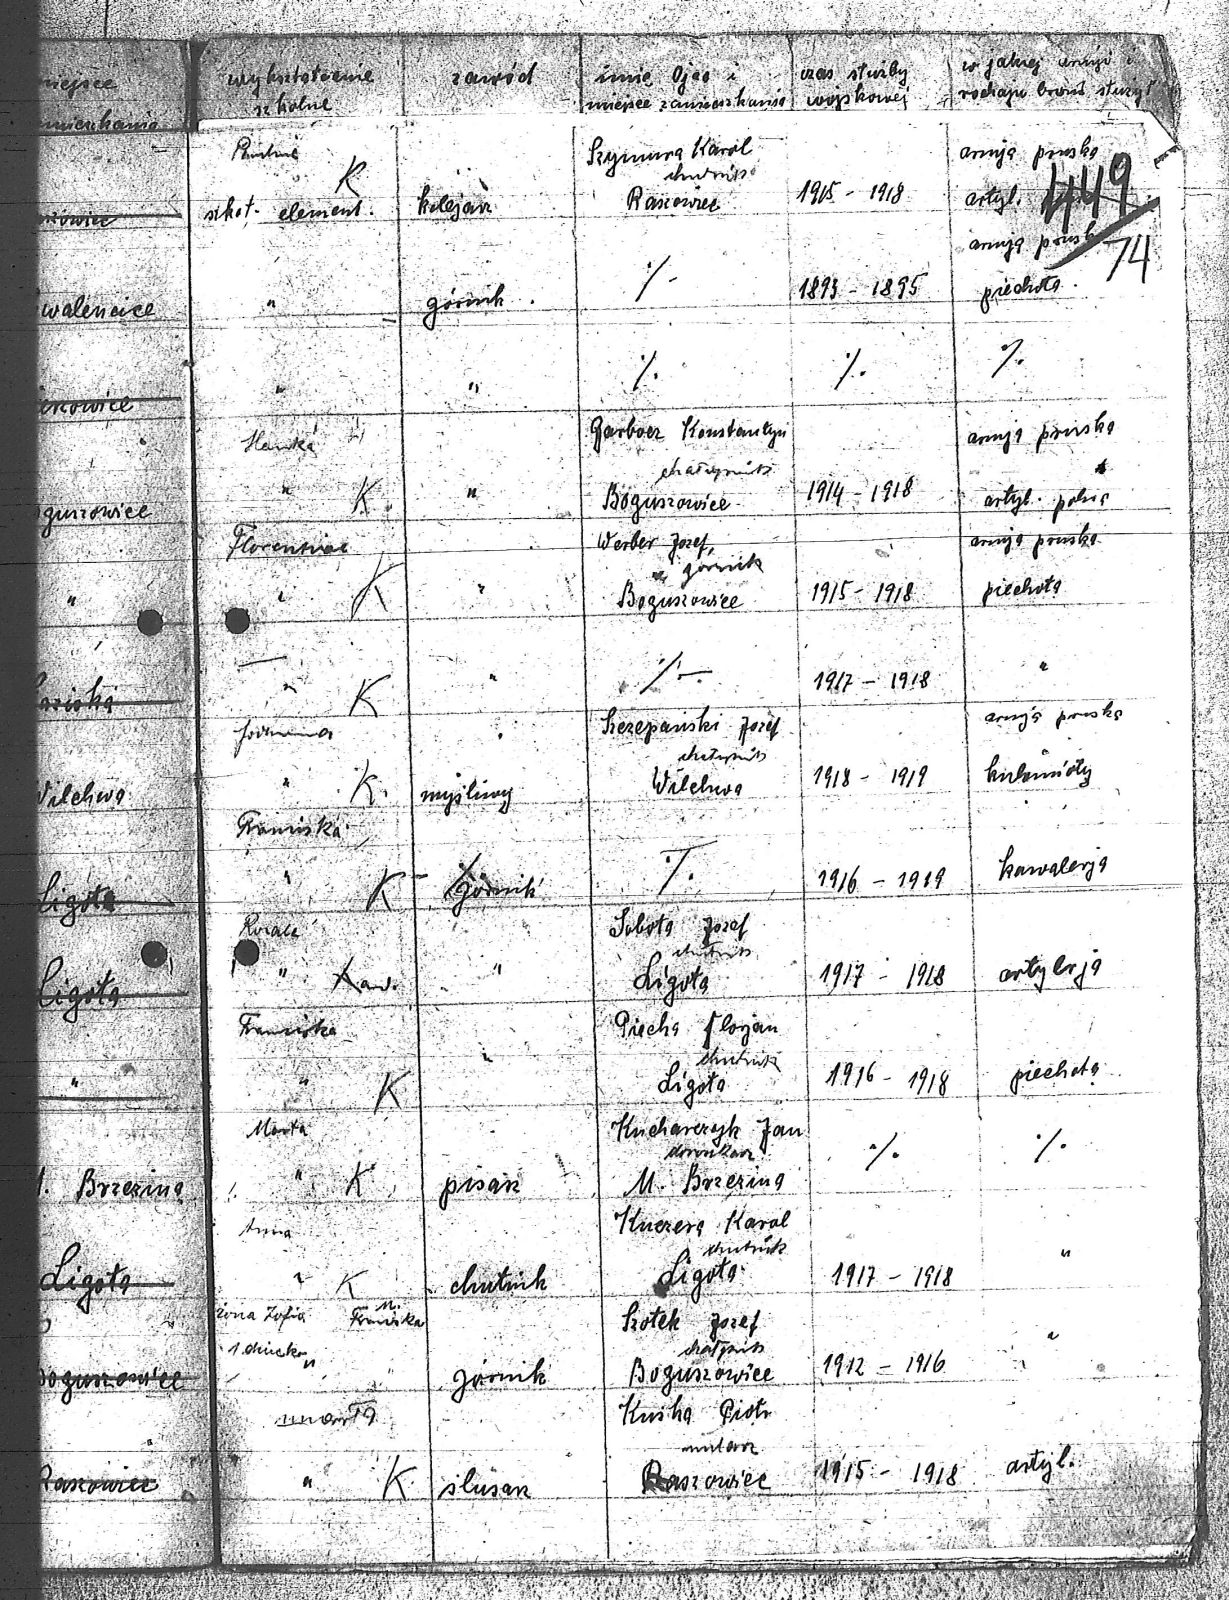 miejsce wykształcenie zawód imię Ojca i czas służby w jakiej armji i
mieszkania szkolne miejsce zamieszkania wojskowej rodzaju broni służył
Szymura Karol armja pruska
K chałupnik
szkoł. element. kolejarz Raszowiec 1915 - 1918 artyl. 449
armja prusk
74
walencice " górnik . ·/- 1893 - 1895 piechota.
" " ·/. ·/. ·/.
Hanka Garbocz Konstantyn armja pruska
chałupnik
guszowice " K " Boguszowice 1914 - 1918 artyl. polna
Florentine Werber Józef, armja pruska
górnik
" " K " Boguszowice 1915 - 1918 piechota
" K " ·/- 1917 - 1918 "
Szczepański Józef armja pruska
chałupnik
Wilchwa " K. myśliwy Wilchwa 1918 - 1919 kulomioty
Franciska
Ligota " K górnik ·/. 1916 - 1919 kawalerja
Sobota Józef
Ligota " Kaw. " Ligota 1917 - 1918 artylrja
Franciska Piecha Florjan
chałupnik
" " K " Ligota 1916 - 1918 piechota
Marta Kucharczyk Jan
·/. ·/.
M. Brzezina " K pisarz M. Brzezina
Anna Kuczera Karol
chałupnik "
Ligota " K chałupnik Ligota 1917 - 1918
żona Zofia M. Franciska Szotek Józef
1 dziecko chałupnik "
Boguszowice " górnik Boguszowice 1912 - 1916
Kuśka Piotr
mularz
Raszowiec " K ślusarz Raszowiec 1915 - 1918 artyl.